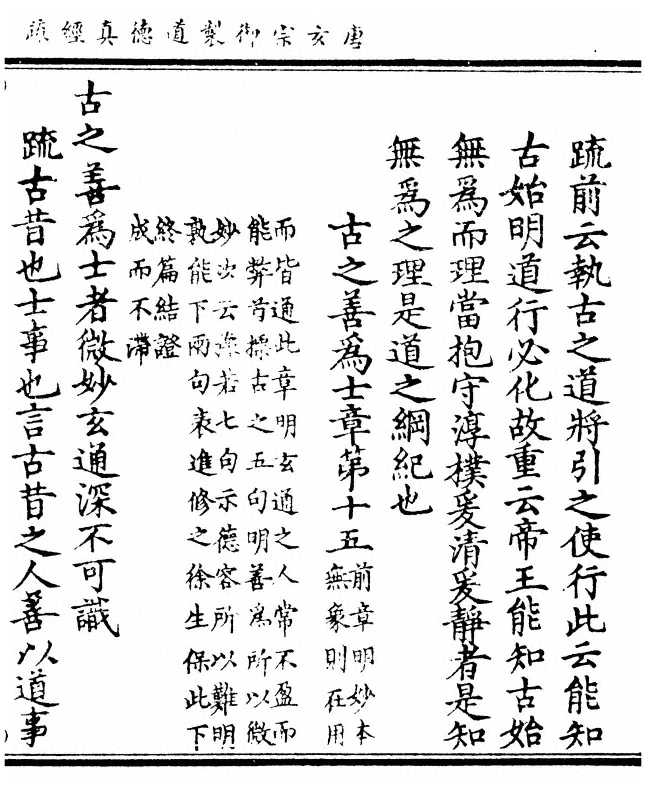 唐玄宗御製道德真經疏
疏前云執古之道將引之使行此云能知
古始明道行必化故重云帝王能知古始
無爲而理當抱守淳樸爰清爰靜者是知
無爲之理是道之綱紀也
古之善爲士章第十五
前章明妙本
無象則在用
而皆通此章明玄通之人常不盈而
能弊首摽古之五句明善爲所以微
妙次云若七句示德容所以難明
孰能下兩句表進修之徐生保此下
終篇結證
成而不滯
古之善爲士者微妙玄通深不可識
疏古昔也士事也言古昔之人善以道事